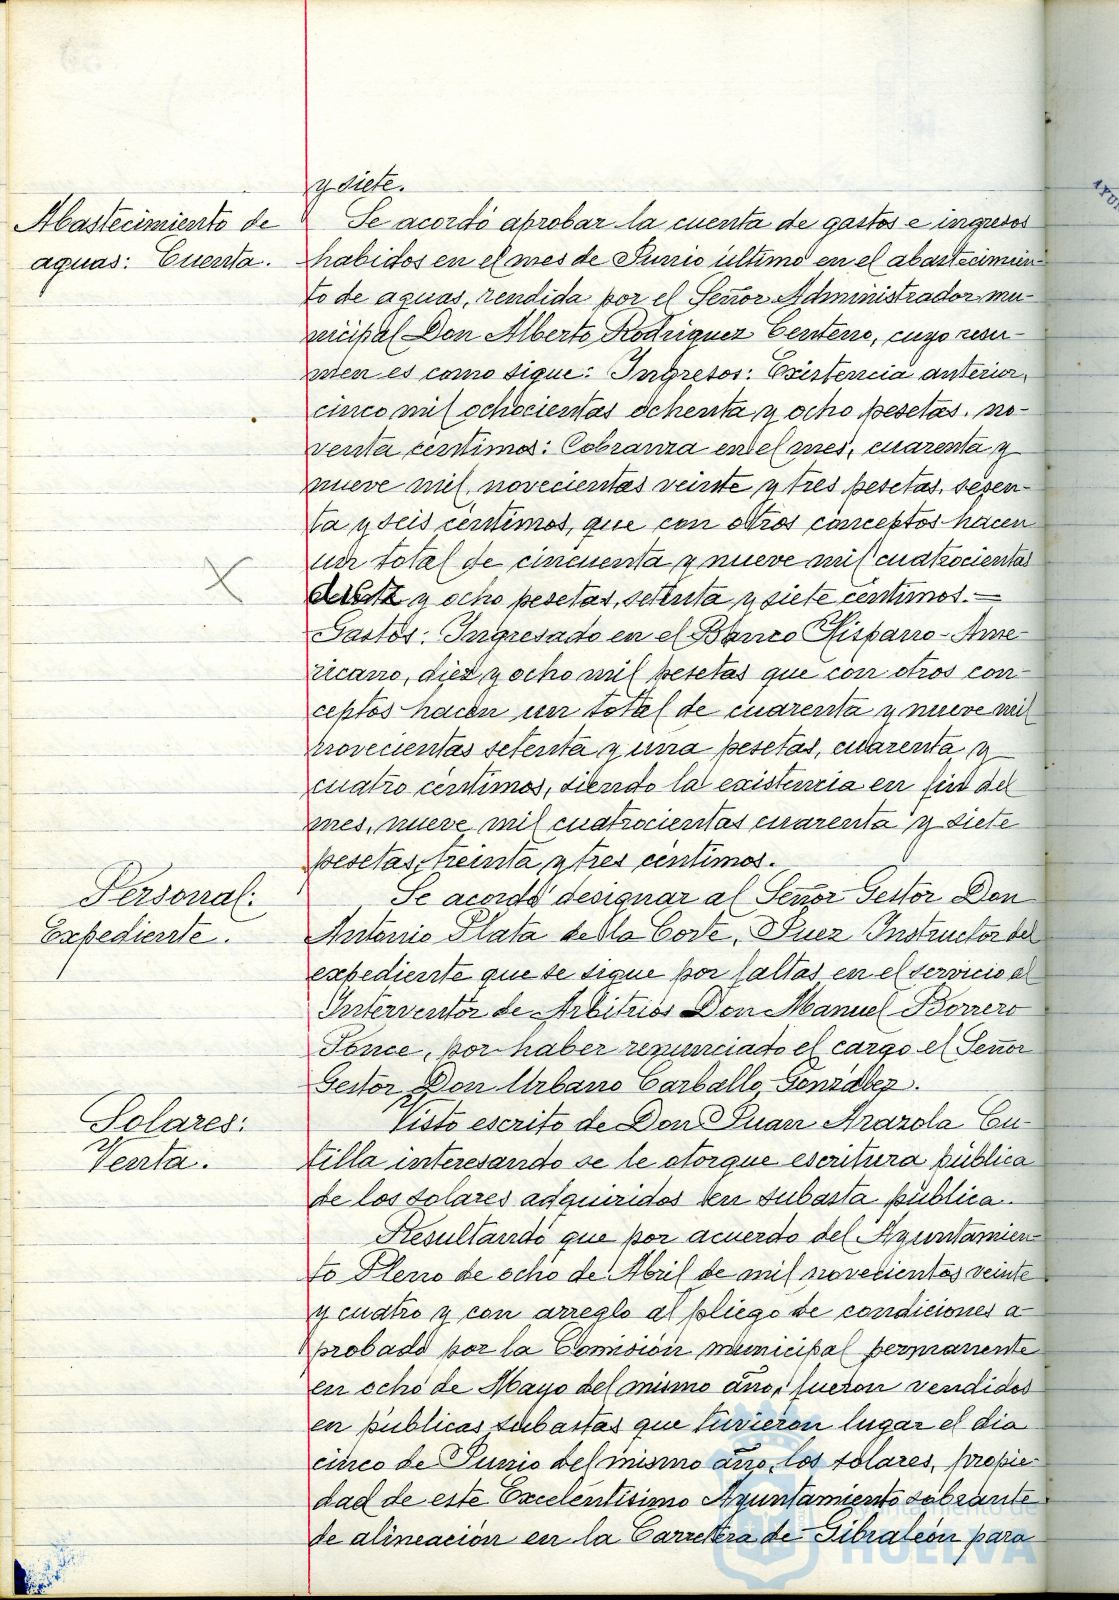 y siete.
Abastecimiento de
aguas: Cuenta.
Se acordó aprobar la cuenta de gastos e ingresos
habidos en el mes de Junio último en el abastecimien-
to de aguas, rendida por el Señor Administrador mu-
nicipal Don Alberto Rodriguez Centeno, cuyo resu-
men es como sigue: Ingresos: Existencia anterior,
cinco mil ochocientas ochenta y ocho pesetas, no-
venta céntimos: Cobranza en el mes, cuarenta y
nueve mil, novecientas veinte y tres pesetas, sesen-
ta y seis céntimos, que con otros conceptos hacen
un total de cincuenta y nueve mil cuatrocientas
y ocho pesetas, setenta y siete céntimos.=
Gastos: Ingresado en el Banco Hispano-Ame-
ricano, diez y ocho mil pesetas que con otros con-
ceptos hacen un total de cuarenta y nueve mil
novecientas setenta y una pesetas, cuarenta y
cuatro céntimos, siendo la existencia en fin del
mes, nueve mil cuatrocientas cuarenta y siete
pesetas, treinta y tres céntimos.
Personal:
Expediente.
Se acordó designar al Señor Gestor Don
Antonio Plata de la Corte, Juez Instructor del
expediente que se sigue por faltas en el servicio al
Interventor de Arbitrios Don Manuel Borrero
Ponce, por haber renunciado el cargo el Señor
Gestor Don Urbano Carballo González.
Solares:
Venta.
Visto escrito de Don Juan Arazola Cu-
tilla interesando se le otorgue escritura pública
de los solares adquiridos en subasta pública.
Resultando que por acuerdo del Ayuntamien-
to Pleno de ocho de Abril de mil novecientos veinte
y cuatro y con arreglo al pliego de condiciones a-
probado por la Comisión municipal permanente
en ocho de Mayo del mismo año, fueron vendidos
en públicas subastas que tuvieron lugar el día
cinco de Junio del mismo año, los solares, propie-
dad de este Excelentísimo Ayuntamiento sobrante
de alineación en la Carretera de Gibraleón para
Ayuntamiento de
HUELVA